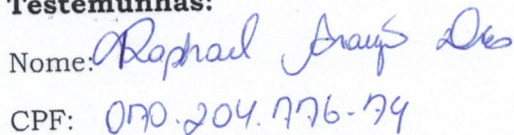 Testemunhas:
Nome: Raphael Araujo Dias
CPF: 070.204.776-74